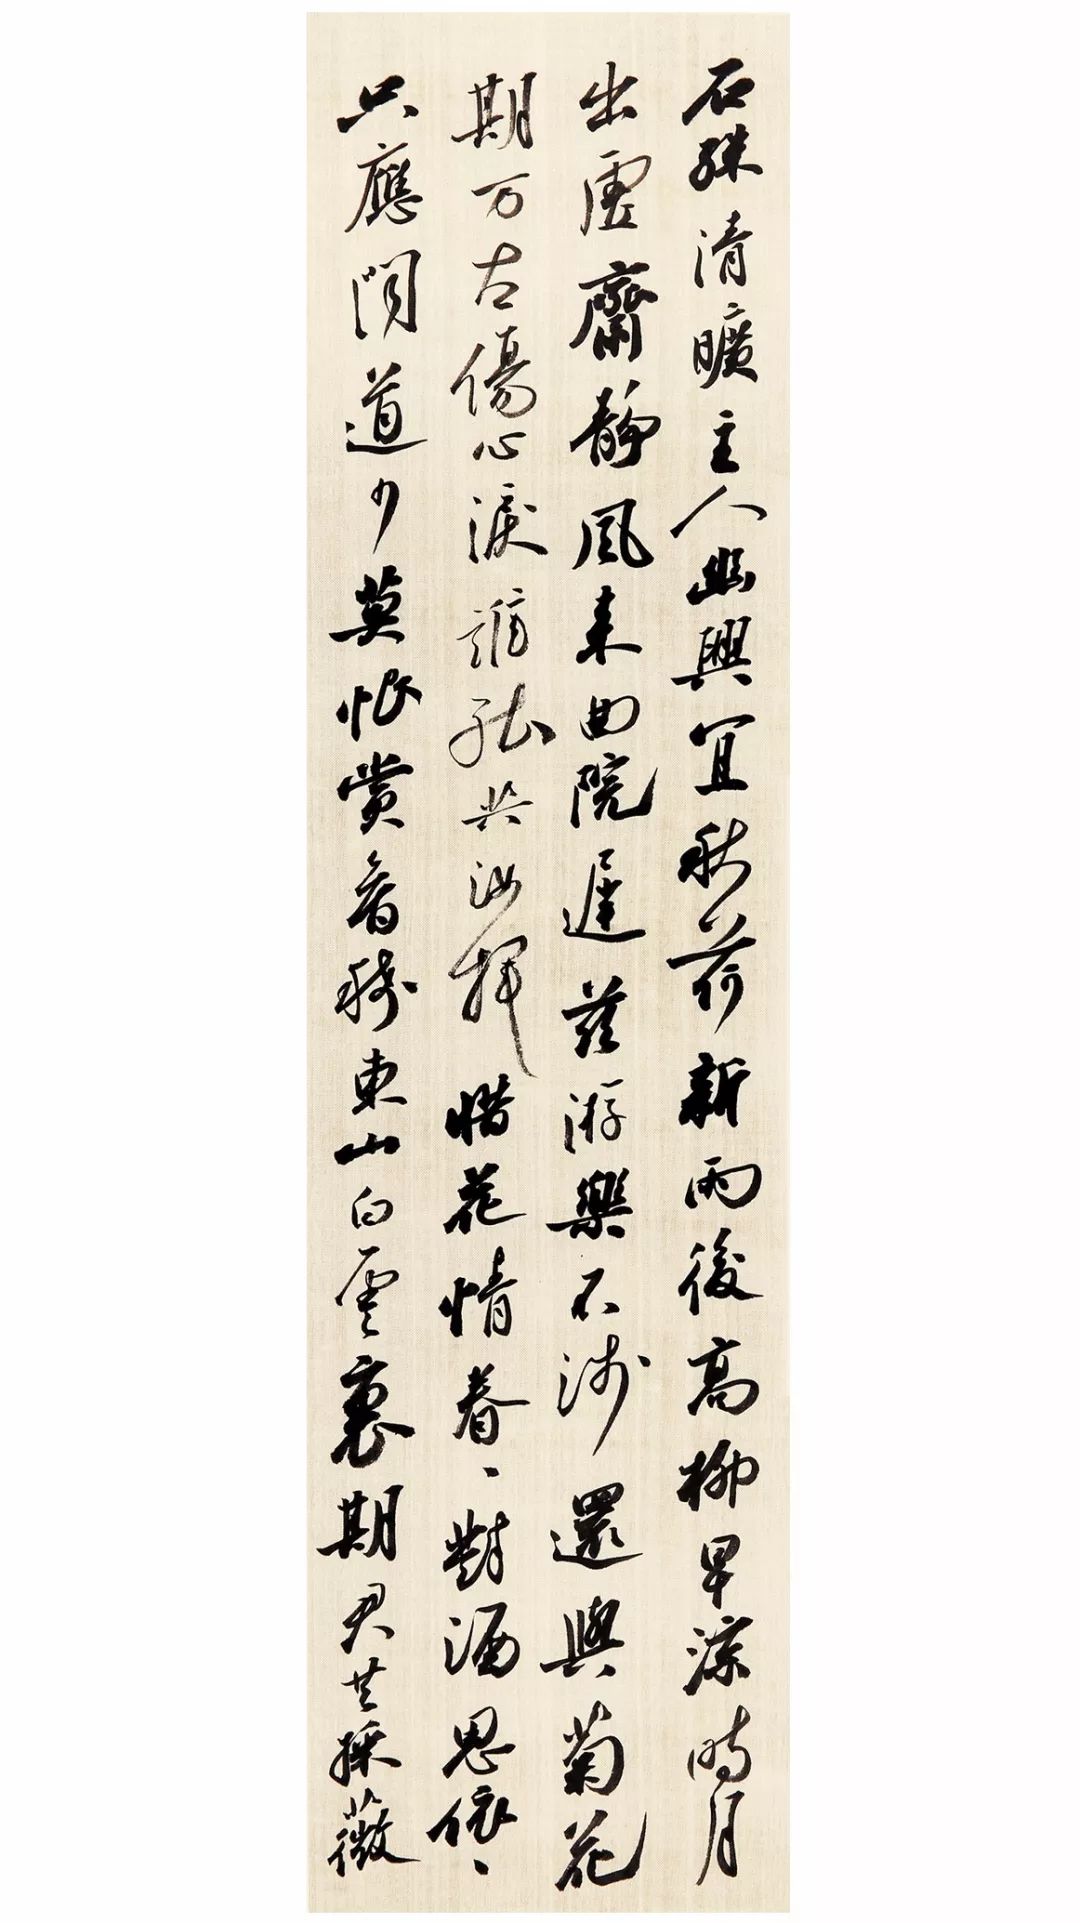 石殊清曠主人幽興宜秋荷新雨後高柳早涼時月
出虛齋靜風來曲院遲茲游樂不淺還與菊花
期万古傷心淚誰能共汝揮惜花情眷、對酒思依、
只應聞道少莫恨賞音稀東山白雲裏期君共採薇